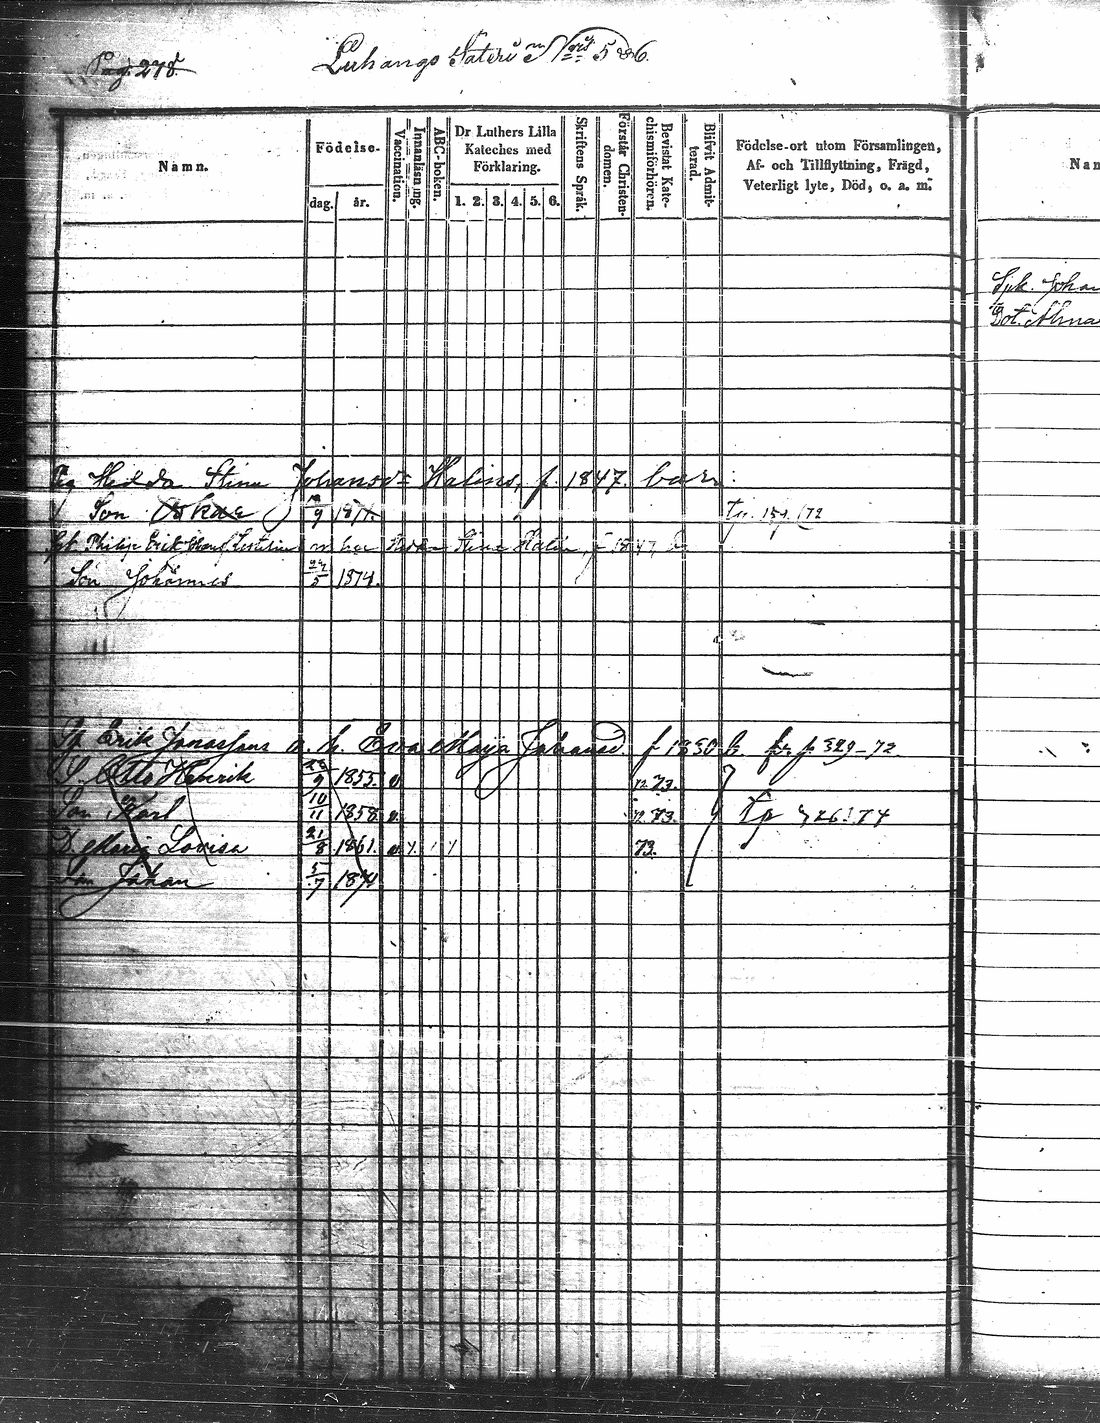 Pag. 278.
Luhangs Säteri Nris 5 & 6.
Namn.
Födelse-
dag. år.
Vaccination.
Innanläsning.
ABC-boken.
Dr Luthers Lilla
Kateches med
Förklaring.
1. 2. 3. 4. 5. 6.
Skriftens Språk.
Förstår Christen-
domen.
Bevistat Kate-
chismiförhören.
Blifvit Admit-
terad.
Födelse-ort utom Församlingen,
Af- och Tillflyttning, Frägd,
Veterligt lyte, Död, o. a. m.
Nam
Spk. Johan
Dot. Alma
Pig Hedda Stina Johansdr Halins, f. 1847. barn.
Son Oskar 9 1871. 72
Philip Erik Hedda Stina Halin, f. 1847
Son Johannes 24/5 1874.
Erik Jonassons o. h. Eva Maja Johansd. f 1830 b. fr. p 329-72
S. Otto Henrik 9 1855. v n 73.
Son Karl 10/11 1858 v. n 73. Tp 326. 74
D. Maria Lovisa 21/8 1861. v 73.
Son Johan 5/7 1874